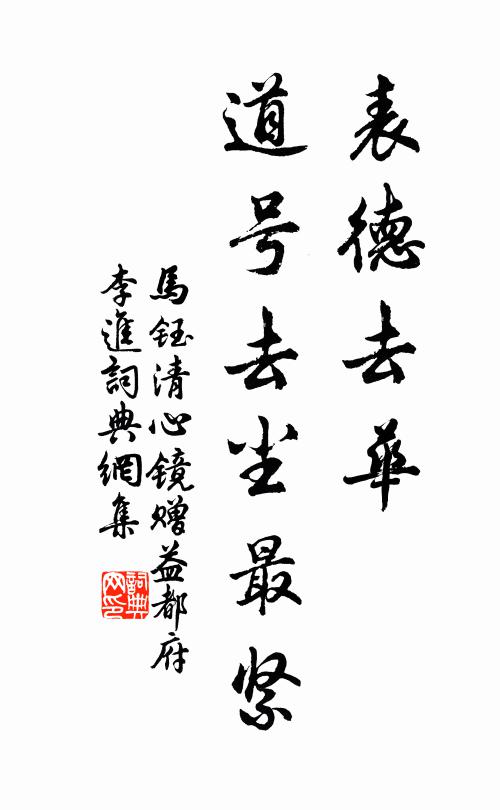 表德去华
道号去尘最紧
馬鈺清心镜赠益都府
李進詞典網集
詞典
网印